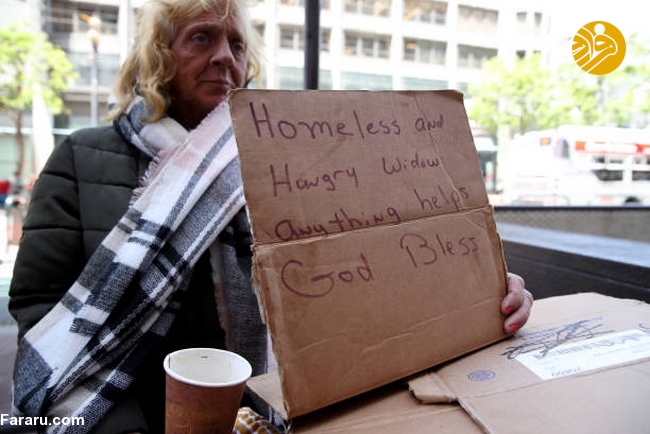 Homeless and
Hungry Widow
anything helps
God Bless
Fararu.com